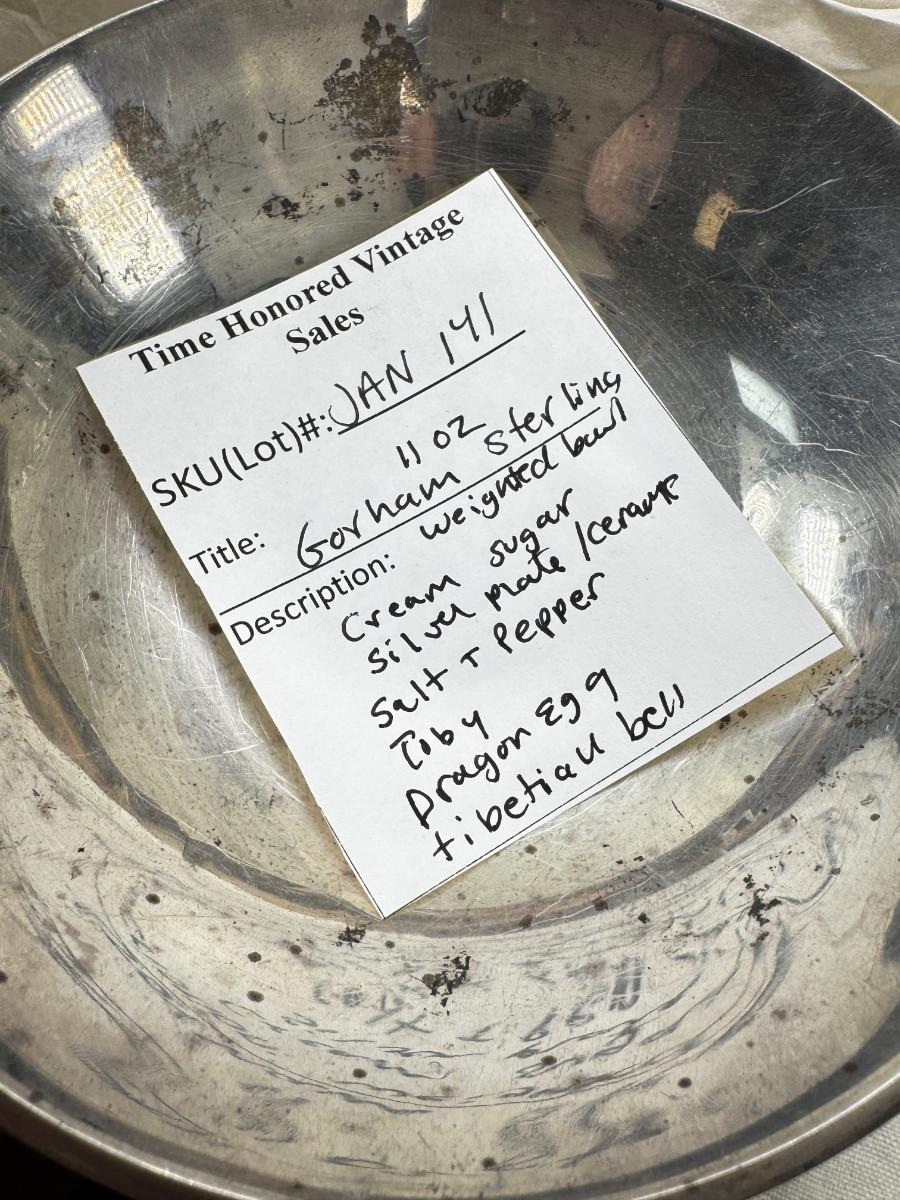 Time Honored Vintage
Sales
SKU(Lot)#: JAN 141
11 oz
Title: Gorham sterling
weighted bowl
Description:
Cream sugar
silver plate /ceramic
Salt + Pepper
Toby
Dragon Egg
tibetian bell